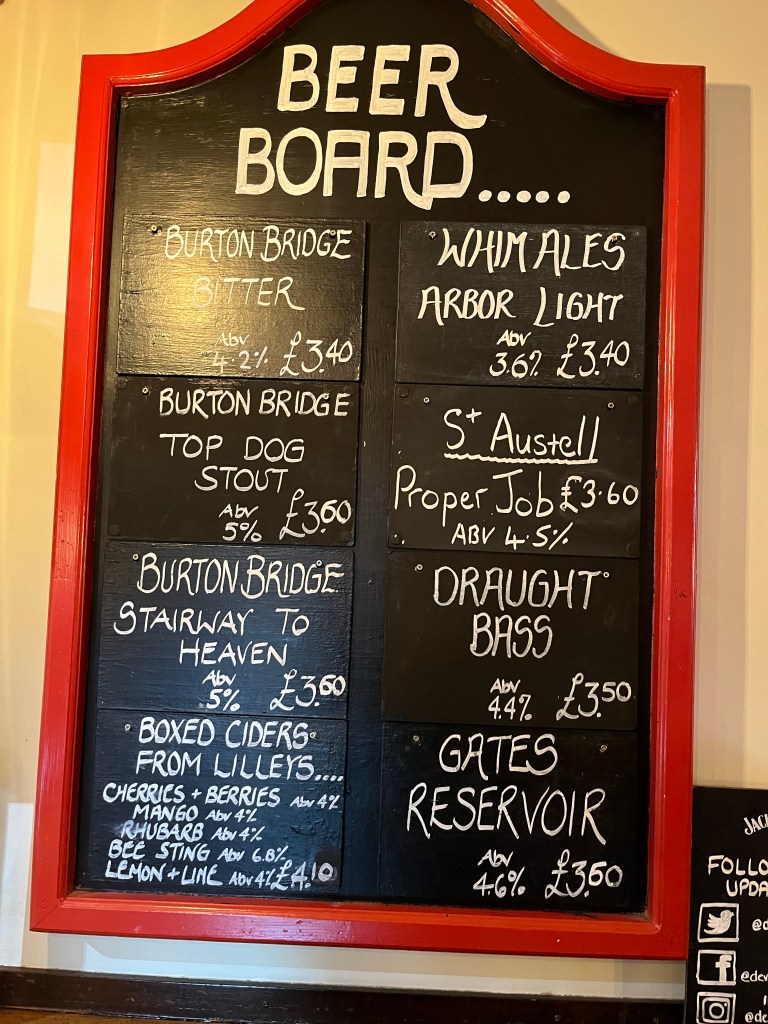 BEER
BOARD.....
BURTON BRIDGE
BITTER
ABV
4.2% £3.40
BURTON BRIDGE
TOP DOG
STOUT
ABV
5% £3.60
BURTON BRIDGE
STAIRWAY TO
HEAVEN
ABV
5% £3.60
BOXED CIDERS
FROM LILLEYS....
CHERRIES + BERRIES ABV 4%
MANGO ABV 4%
RHUBARB ABV 4%
BEE STING ABV 6.8%
LEMON + LINE ABV 4% £4.10
WHIM ALES
ARBOR LIGHT
ABV
3.6% £3.40
St Austell
Proper Job £3.60
ABV 4.5%
DRAUGHT
BASS
ABV
4.4% £3.50
GATES
RESERVOIR
ABV
4.6% £3.60
JAC
FOLLO
UPDA
@d
f @dev
@de